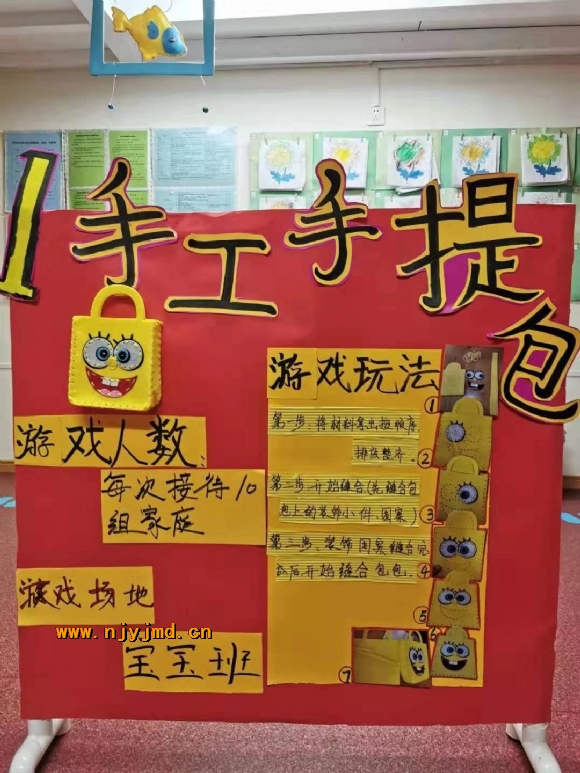 1手工手提包
游戏人数:
每次接待10
组家庭
游戏场地
宝宝班
www.njyjmd.cn
游戏玩法
第一步:将材料拿出按顺序
排放整齐。
第二步:开始缝合(先缝合包
包上的装饰小件、图案)
第三步:装饰图案缝合完
后开始缝合包包.
①
②
③
④
⑤
⑥
⑦